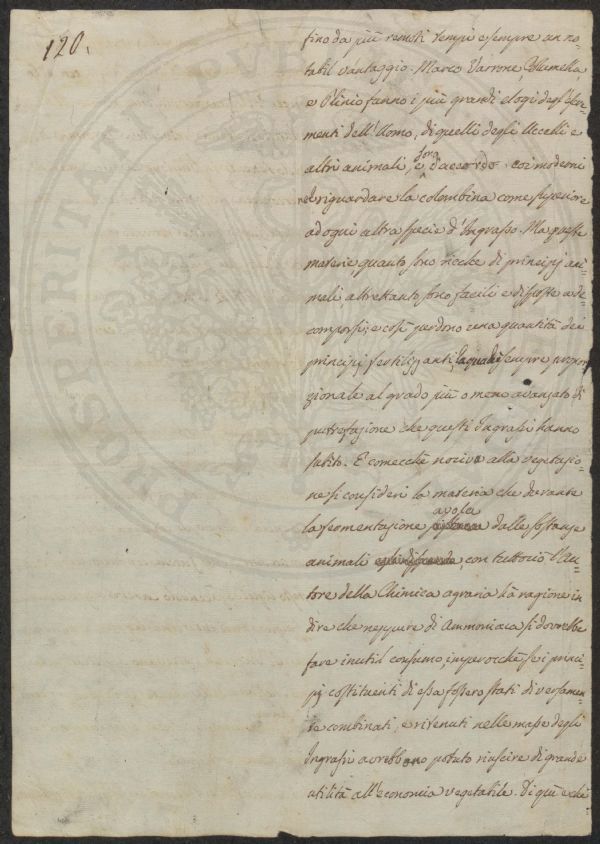 120.
fino da più remoti tempi e sempre un no-
tabil vantaggio. Marco Varrone, Columella,
e Plinio fanno i più grandi elogi degl'Escre-
menti dell'Uomo, di quelli degli Uccelli e
altri animali, e sono d'accordo coi moderni
nel riguardare la colombina come superiore
ad ogni altra specie d'Ingrasso. Ma queste
materie, quanto sono ricche di principj ani-
mali altrettanto sono facili e disposte a de-
comporsi; e così perdono una quantità dei
principj fertilizzanti, la quale è sempre propor-
zionale al grado più o meno avanzato di
putrefazione che questi Ingrassi hanno
subito. E comecchè nociva alla vegetazio-
ne si consideri la materia che durante
la fermentazione esala dalle sostanze
animali, con tuttociò l'Au-
tore della Chimica agraria dà ragione in
dire che neppure di Ammoniaca si dovrebbe
fare inutil consumo, imperocchè se i princi-
pj costituenti di essa fossero stati diversamen-
te combinati, e ritenuti nelle masse degli
Ingrassi avrebbono potuto riuscire di grande
utilità all'economia vegetabile. Di quì è chè
PUBLICAE
POSTERITATI